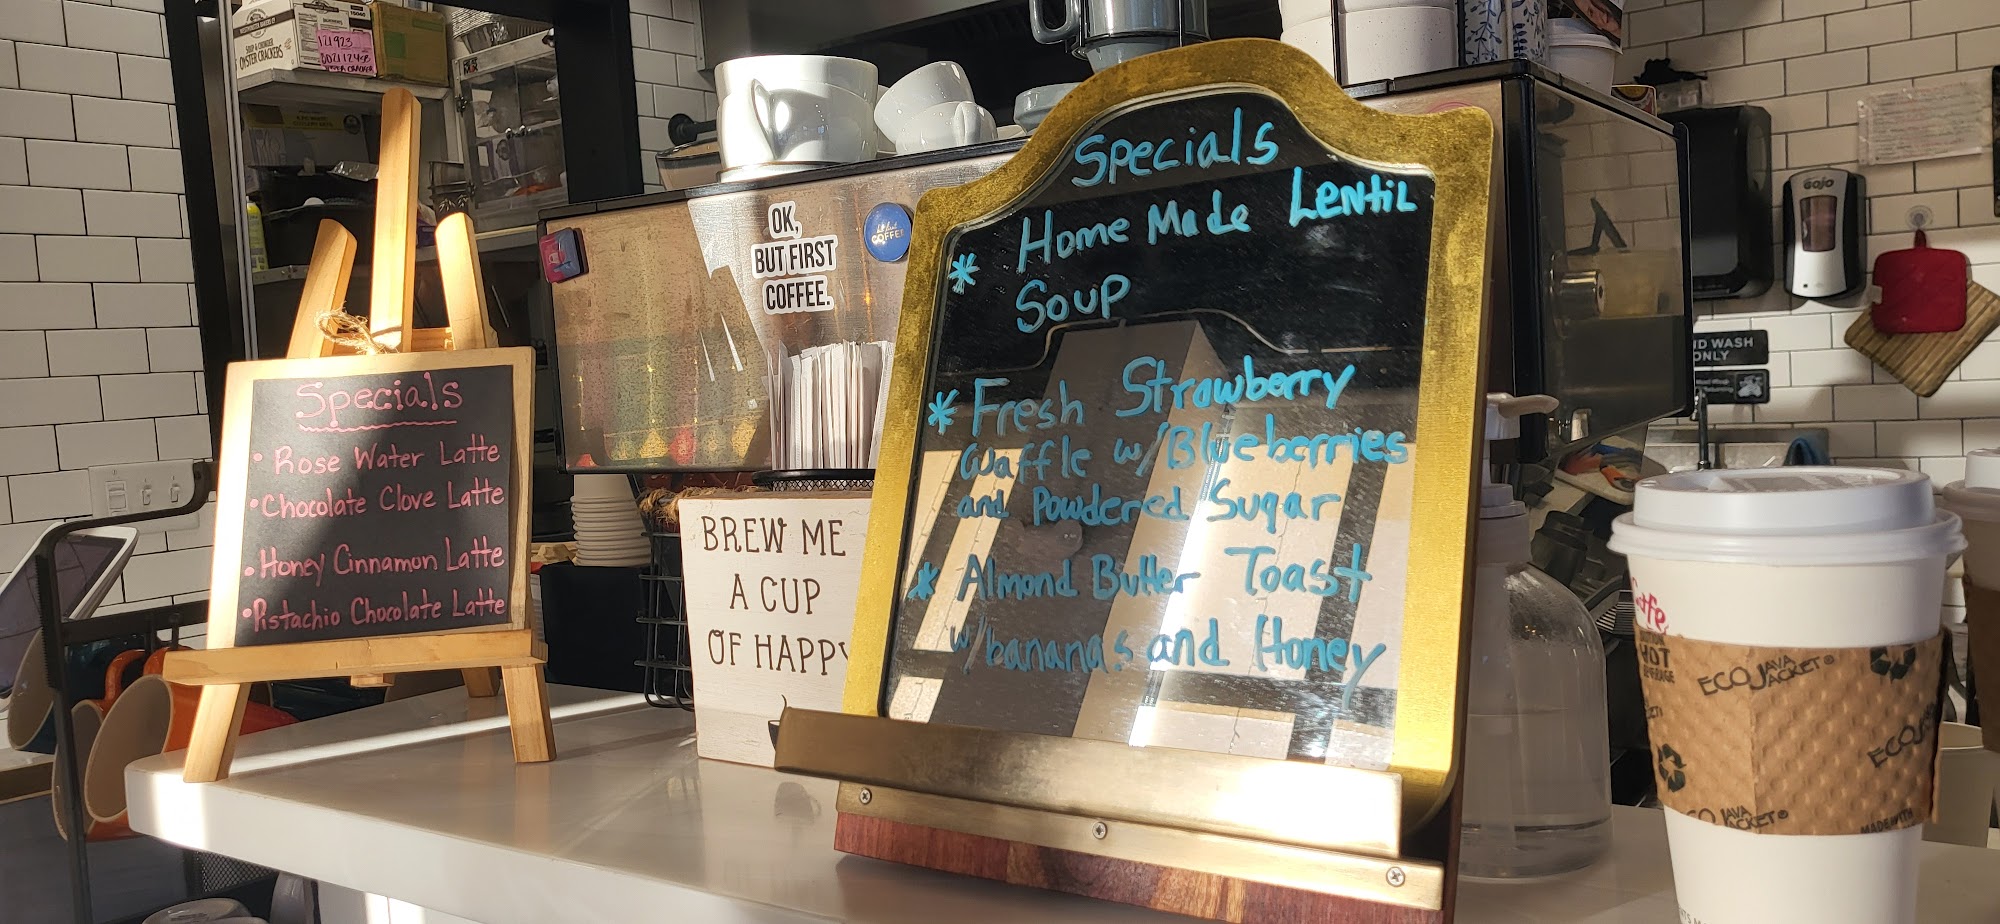 OYSTER CRACKERS
121923
Specials
• Rose Water Latte
• Chocolate Clove Latte
• Honey Cinnamon Latte
• Pistachio Chocolate Latte
OK,
BUT FIRST
COFFEE.
COFFEE
BREW ME
A CUP
OF HAPPY
Specials
* Home Made Lentil
Soup
* Fresh Strawberry
Waffle w/Blueberries
and Powdered Sugar
* Almond Butter Toast
w/bananas and Honey
GOJO
ND WASH
ONLY
HOT
BEVERAGE
ECO JAVA JACKET®
ECO
CO JAVA JACKET®
MADE WITH